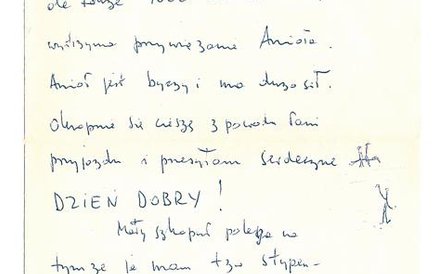 1000
wytrzyma przywiązanie Anioła.
Anioł jest byczy i ma dużo sił.
Okropnie się cieszę z powodu Pani
przyjazdu i przesyłam serdeczne
DZIEŃ DOBRY !
Mały szkopuł polega na
tym że ja mam tzw stypen-